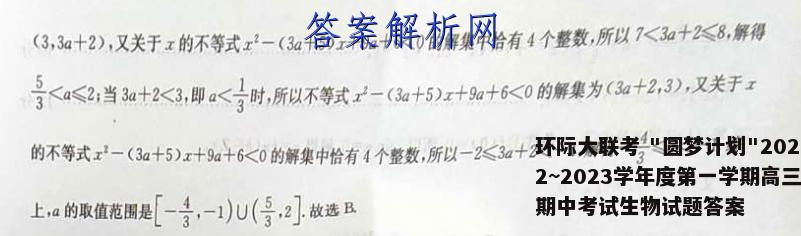 答案解析网
(3,3a+2),又关于x的不等式x²-(3a 的解集中恰有4个整数,所以7<3a+2≤8,解得
5/3<a≤2;当3a+2<3,即a<1/3时,所以不等式x²-(3a+5)x+9a+6<0的解集为(3a+2,3),又关于x
的不等式x²-(3a+5)x+9a+6<0的解集中恰有4个整数,所以-2≤3a+2
上,a的取值范围是[-4/3,-1)∪(5/3,2].故选B.
环际大联考 "圆梦计划"202
2~2023学年度第一学期高三
期中考试生物试题答案